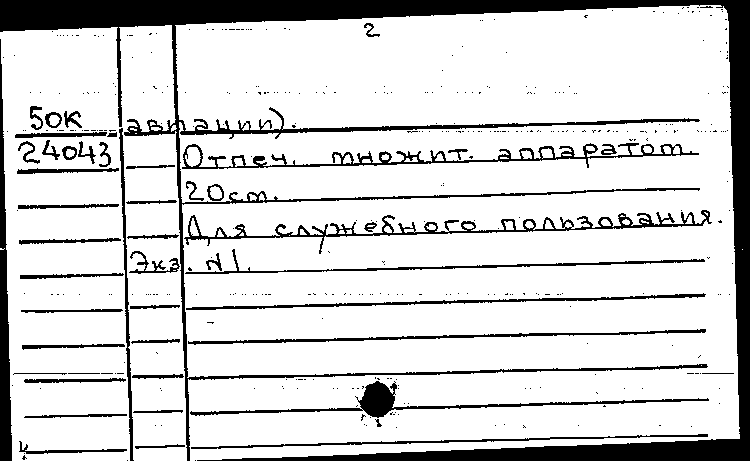 2
50К авиации).
24043 Отпеч. множит. аппаратом.
20см.
Для служебного пользования.
Экз. N1.